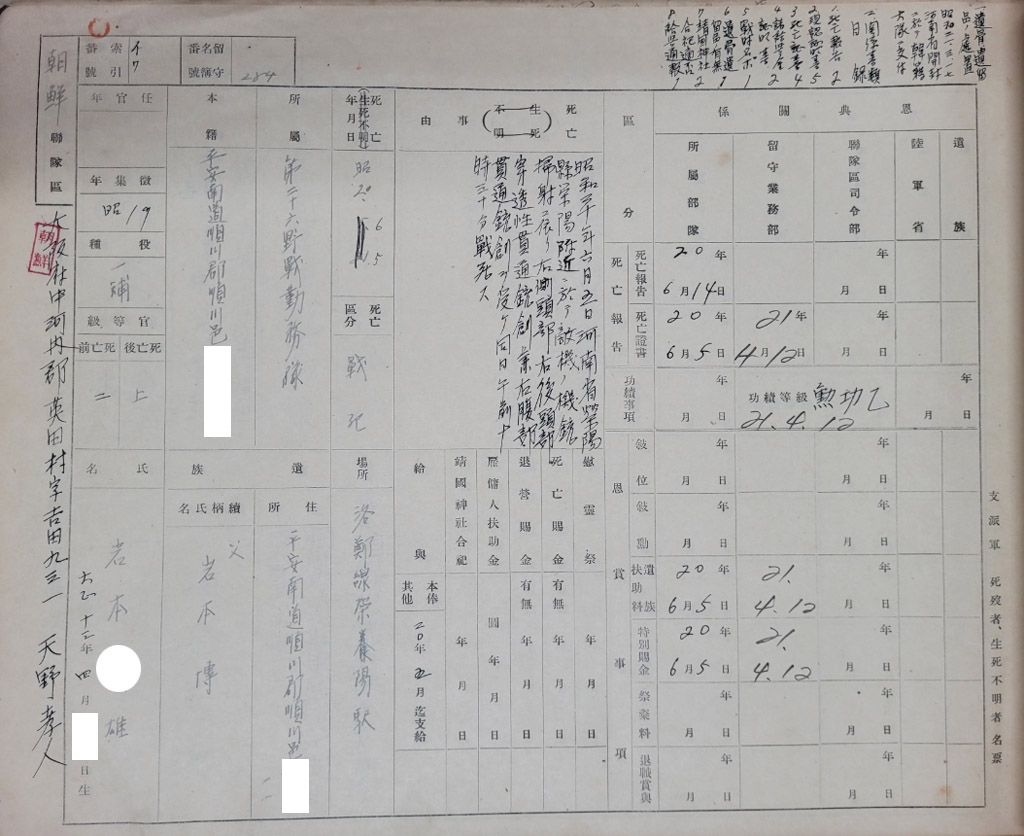 支那派遣軍 死歿者、生死不明者名票
一遺骨遺留
品ノ處置
昭和二一、三、一七
河南省開封
ニ於テ韓籍
大隊ニ交付
二關係書類
目録
1死亡報告 2
2現認証明書 5
3死亡証書 4
4 功績等
5戰時名簿 1
6遺骨遺
留品有無 1
7靖國神社
合祀適否 2
8給与通報 1
留守名簿番號 284
索引番號 イワ
朝鮮 聯隊區
恩典關係
區分
所屬部隊
留守業務部
聯隊區司令部
陸軍省
遺族
死亡報告
死亡報告
20年 6月14日
年 月 日
死亡證書
20年 6月5日
21年 4月12日
年 月 日
功績事項
年 月 日
功績等級 勲功乙
21.4.12
年 月 日
恩賞事項
敍位
年 月 日
敍勳
年 月 日
遺族扶助料
20年 6月5日
21. 4.12
年 月 日
特別賜金
20年 6月5日
21. 4.12
年 月 日
祭粢料
年 月 日
退職賞與
年 月 日
死亡(生死不明)事由
昭和二十年六月五日河南省滎陽
縣滎陽附近ニ於テ敵機ノ機銃
掃射ニ依リ右側頭部右後頭部
穿透性貫通銃創兼右腹部
貫通銃創ヲ受ケ同日午前十
時三十分戰死ス
慰靈祭 年 月 日
死亡賜金 有無 年 月 日
退營賜金 有無 年 月 日
雇傭人扶助金 圓 年 月 日
靖國神社合祀 年 月 日
給與
本俸其他 20年 5月迄支給
死亡(生死不明)年月日
昭20. 6 5
死亡區分
戰死
場所
洛鄭線滎陽駅
所屬
第二十六野戰勤務隊
本籍
平安南道順川郡順川邑
遺族
住所
平安南道順川郡順川邑
續柄氏名
父 岩本 博
任官年
徵集年
昭19
役種
一補
官等級
死亡前 二
死亡後 上
氏名
岩本 雄
大正十三年四月 日生
朝鮮
大阪府中河内郡英田村字吉田九三一 天野孝人